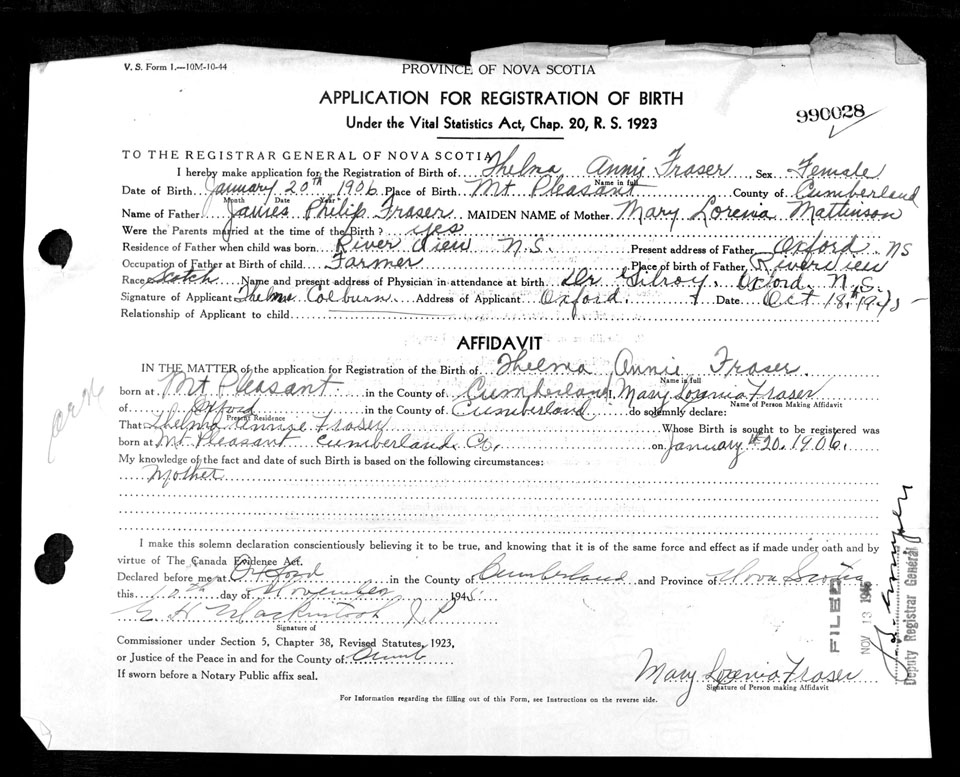 V. S. Form 1.—10M-10-44
PROVINCE OF NOVA SCOTIA
APPLICATION FOR REGISTRATION OF BIRTH
990028
Under the Vital Statistics Act, Chap. 20, R. S. 1923
TO THE REGISTRAR GENERAL OF NOVA SCOTIA
I hereby make application for the Registration of Birth of Thelma Annie Fraser, Sex Female
Name in full
Date of Birth January 20th 1906 Place of Birth Mt Pleasant County of Cumberland
Month Date Year
Name of Father James Philip Fraser MAIDEN NAME of Mother Mary Lorenia Mattinson
Were the Parents married at the time of the Birth? yes
Residence of Father when child was born River View N.S. Present address of Father Oxford NS
Occupation of Father at Birth of child Farmer Place of birth of Father Riverview
Race Scotch Name and present address of Physician in attendance at birth Dr Gilroy. Oxford. N.S.
Signature of Applicant Thelma Colburn Address of Applicant Oxford. Date Oct 18th 1945
Relationship of Applicant to child
AFFIDAVIT
IN THE MATTER of the application for Registration of the Birth of Thelma Annie Fraser.
Name in full
born at Mt Pleasant in the County of Cumberland I, Mary Lorenia Fraser
Name of Person Making Affidavit
of Oxford in the County of Cumberland do solemnly declare:
Present Residence
That Thelma Annie Fraser Whose Birth is sought to be registered was
born at Mt Pleasant Cumberland Co. on January 20th. 1906.
My knowledge of the fact and date of such Birth is based on the following circumstances:
Mother
I make this solemn declaration conscientiously believing it to be true, and knowing that it is of the same force and effect as if made under oath and by
virtue of The Canada Evidence Act.
Declared before me at Oxford in the County of Cumberland and Province of Nova Scotia
this 10th day of November 1945
E H Mackintosh J P
Signature of
Commissioner under Section 5, Chapter 38, Revised Statutes, 1923,
or Justice of the Peace in and for the County of Cumb
If sworn before a Notary Public affix seal.
Mary Lorenia Fraser
Signature of Person making Affidavit
For Information regarding the filling out of this Form, see Instructions on the reverse side.
FILED
NOV 13 1945
Deputy Registrar General